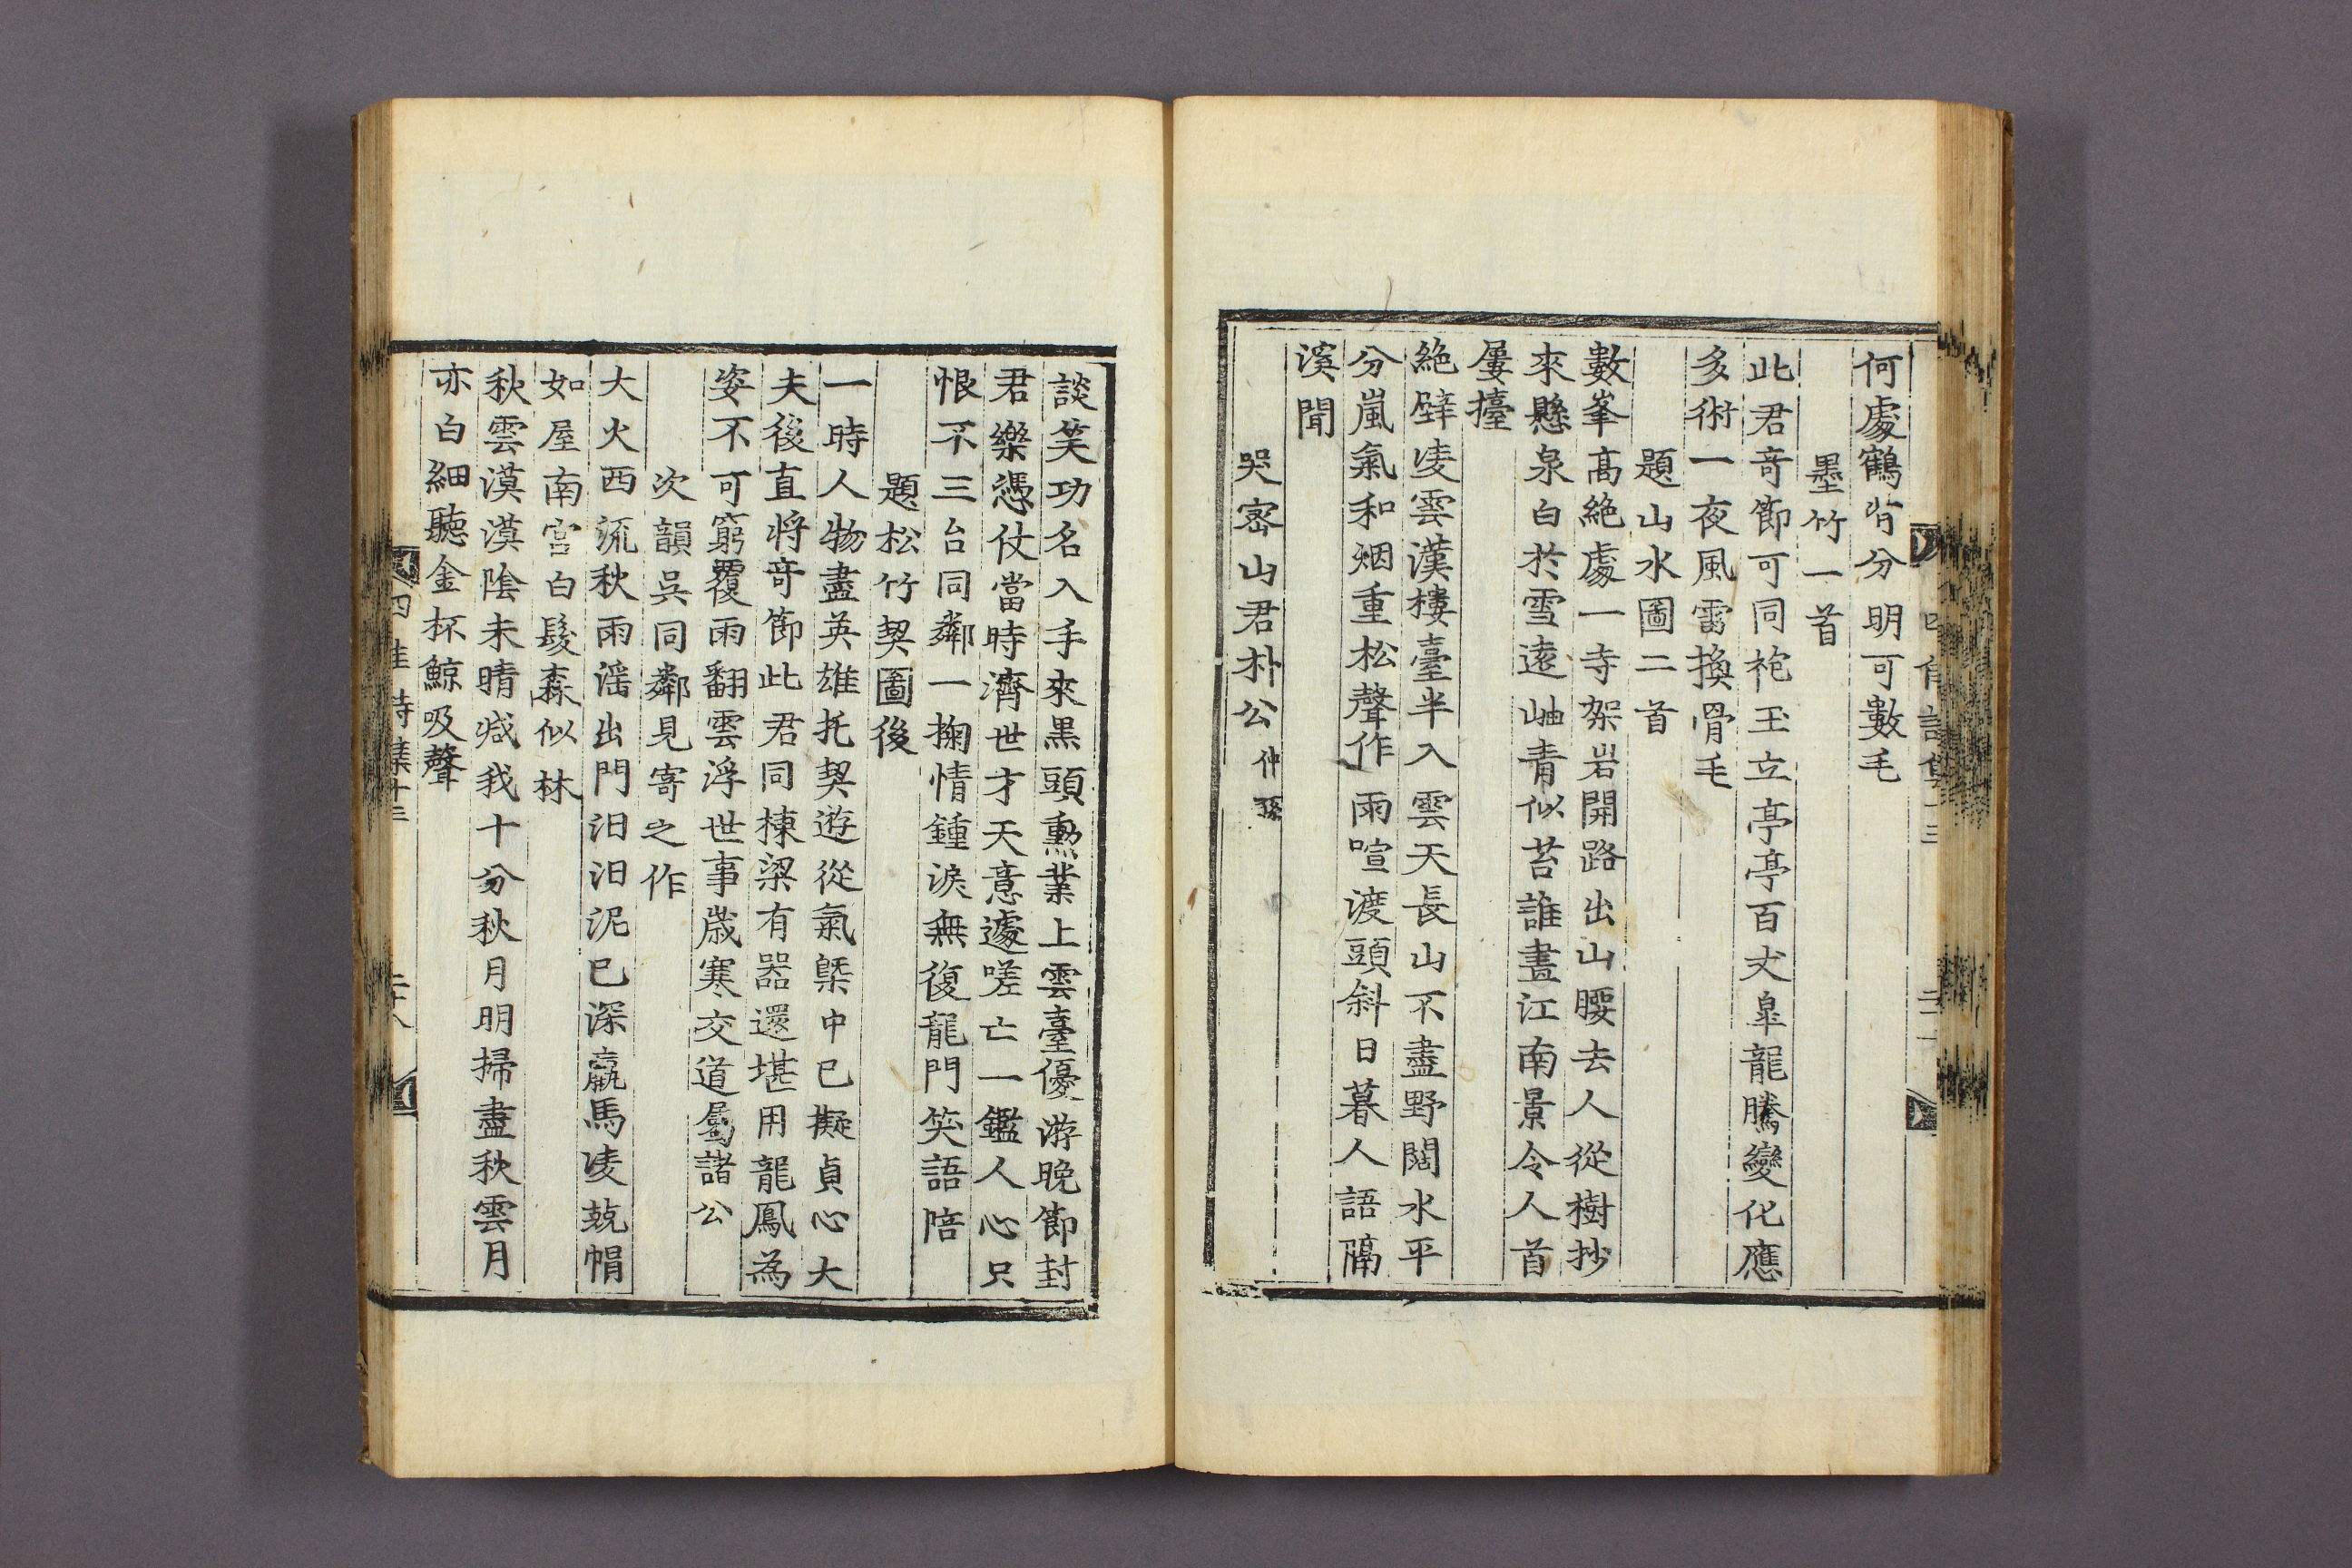 何處鶴背分明可數毛
墨竹一首
此君竒節可同袍玉立亭亭百丈皐龍騰變化應
多術一夜風雷換骨毛
題山水圖二首
數峯髙絶處一寺架岩開路出山腰去人從樹抄
來懸泉白於雪遠岫青似苔誰畫江南景令人首
屢擡
絶壁凌雲漢樓臺半入雲天長山不盡野闊水平
分嵐氣和烟重松聲作雨喧渡頭斜日暮人語隔
溪聞
哭密山君朴公仲孫
談笑功名入手來黒頭勳業上雲臺優游晚節封
君樂憑仗當時濟世才天意遽嗟亡一鑑人心只
恨不三台同鄰一掬情鍾淚無復龍門笑語陪
題松竹契圖後
一時人物盡英雄托契遊從氣槩中已擬貞心大
夫後直将竒節此君同棟梁有器還堪用龍鳳為
姿不可窮覆雨翻雲浮世事歳寒交道屬諸公
次韻吳同鄰見寄之作
大火西流秋雨滛出門汩汩泥已深羸馬凌兢帽
如屋南宮白髮森似林
秋雲漠漠陰未晴喊我十分秋月明掃盡秋雲月
亦白細聽金杯鯨吸聲
四佳詩集十三
二十八